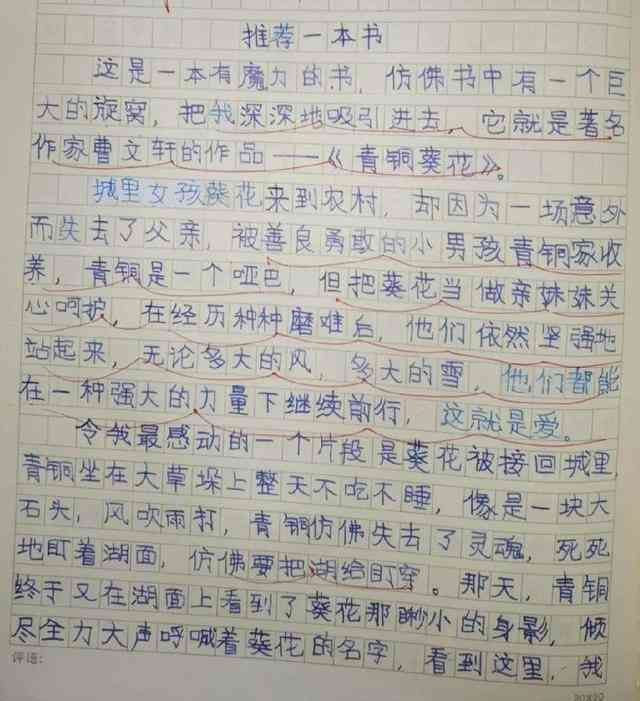 推荐一本书
这是一本有魔力的书，仿佛书中有一个巨
大的旋窝，把我深深地吸引进去，它就是著名
作家曹文轩的作品——《青铜葵花》。
城里女孩葵花来到农村，却因为一场意外
而失去了父亲，被善良勇敢的小男孩青铜家收
养，青铜是一个哑巴，但把葵花当做亲妹妹关
心呵护，在经历种种磨难后，他们依然坚强地
站起来，无论多大的风，多大的雪，他们都能
在一种强大的力量下继续前行，这就是爱。
令我最感动的一个片段是葵花被接回城里，
青铜坐在大草垛上整天不吃不睡，像是一块大
石头，风吹雨打，青铜仿佛失去了灵魂，死死
地盯着湖面，仿佛要把湖给盯穿。那天，青铜
终于又在湖面上看到了葵花那瞅小的身影，倾
尽全力大声呼喊着葵花的名字，看到这里，我
评语：
20×20